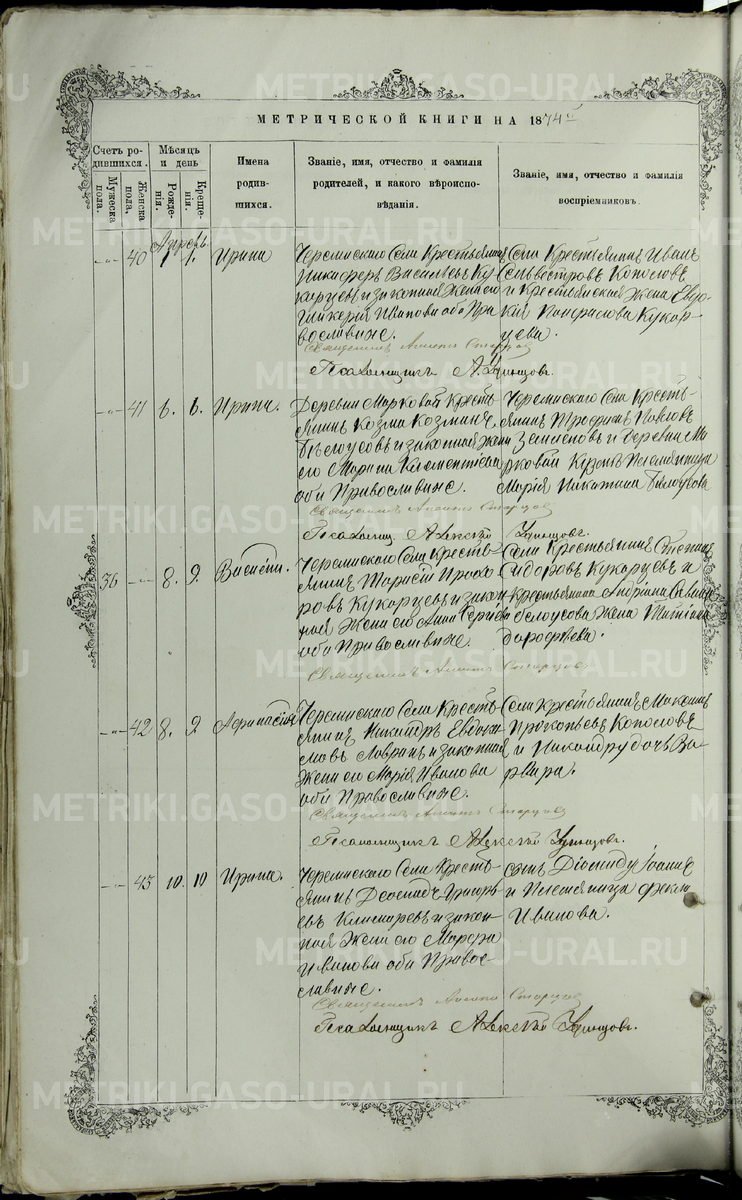 МЕТРИЧЕСКОЙ КНИГИ НА 1874й
Счетъ родившихся.
Мужеска пола.
Женска пола.
Мѣсяцъ и день
Рожденія.
Крещенія.
Имена родившихся.
Званіе, имя, отчество и фамилія родителей, и какого вѣроисповѣданія.
Званіе, имя, отчество и фамилія воспріемниковъ.
Апрель
40 1. 1. Ирина
Черемискаго Села Крестьянинъ
Никифоръ Васильевъ Ку-
карцевъ и законная жена его
Гликерія Иванова оба Пра-
вославные.
Села Крестьянинъ Иванъ
Сельвестровъ Кополовъ
и Крестьянская жена Евдо-
кія Панфилова Кукар-
цева.
Священникъ Старцевъ
Псаломщикъ А.
41 6. 6. Ирина.
Деревни Марковой Кресть-
янинъ Козма Козминъ
Бѣлоусовъ и законная жена
его Марина Климентіева
оба Православные.
Черемискаго Села Кресть-
янинъ Трофимъ Павловъ
и Деревни Ма-
рковой Кузьмы Племянница
Марія Никитина Бѣлоусова
Священникъ Старцевъ
Псаломщ. Алексѣй
36 8. 9. Василій.
Черемискаго Села Кресть-
янинъ Тарасій Прохо-
ровъ Кукарцевъ и закон-
ная жена его Анна Сергіева
оба Православные.
Села Крестьянинъ Степанъ
Сидоровъ Кукарцевъ и
Крестьянина Андріана
Бѣлоусова жена Татіана
Дорофѣева.
Священникъ Старцевъ
42 8. 9. Афанасія
Черемискаго Села Кресть-
янинъ Никандръ Евдоки-
мовъ Лавринъ и законная
жена его Марія Иванова
оба Православные.
Села Крестьянинъ Максимъ
Прокопьевъ Кополовъ
и Никандру дочь Ва-
рвара.
Священникъ Старцевъ
Псаломщикъ Алексѣй
43 10. 10 Ирина.
Черемискаго Села Кресть-
янинъ Деомидъ Григорь-
евъ и закон-
ная жена его Марфа
Иванова оба Право-
славные.
Діомиду Іоаннъ
и Племянница
Иванова.
Священникъ Старцевъ
Псаломщикъ Алексѣй
METRIKI.GASO-URAL.RU